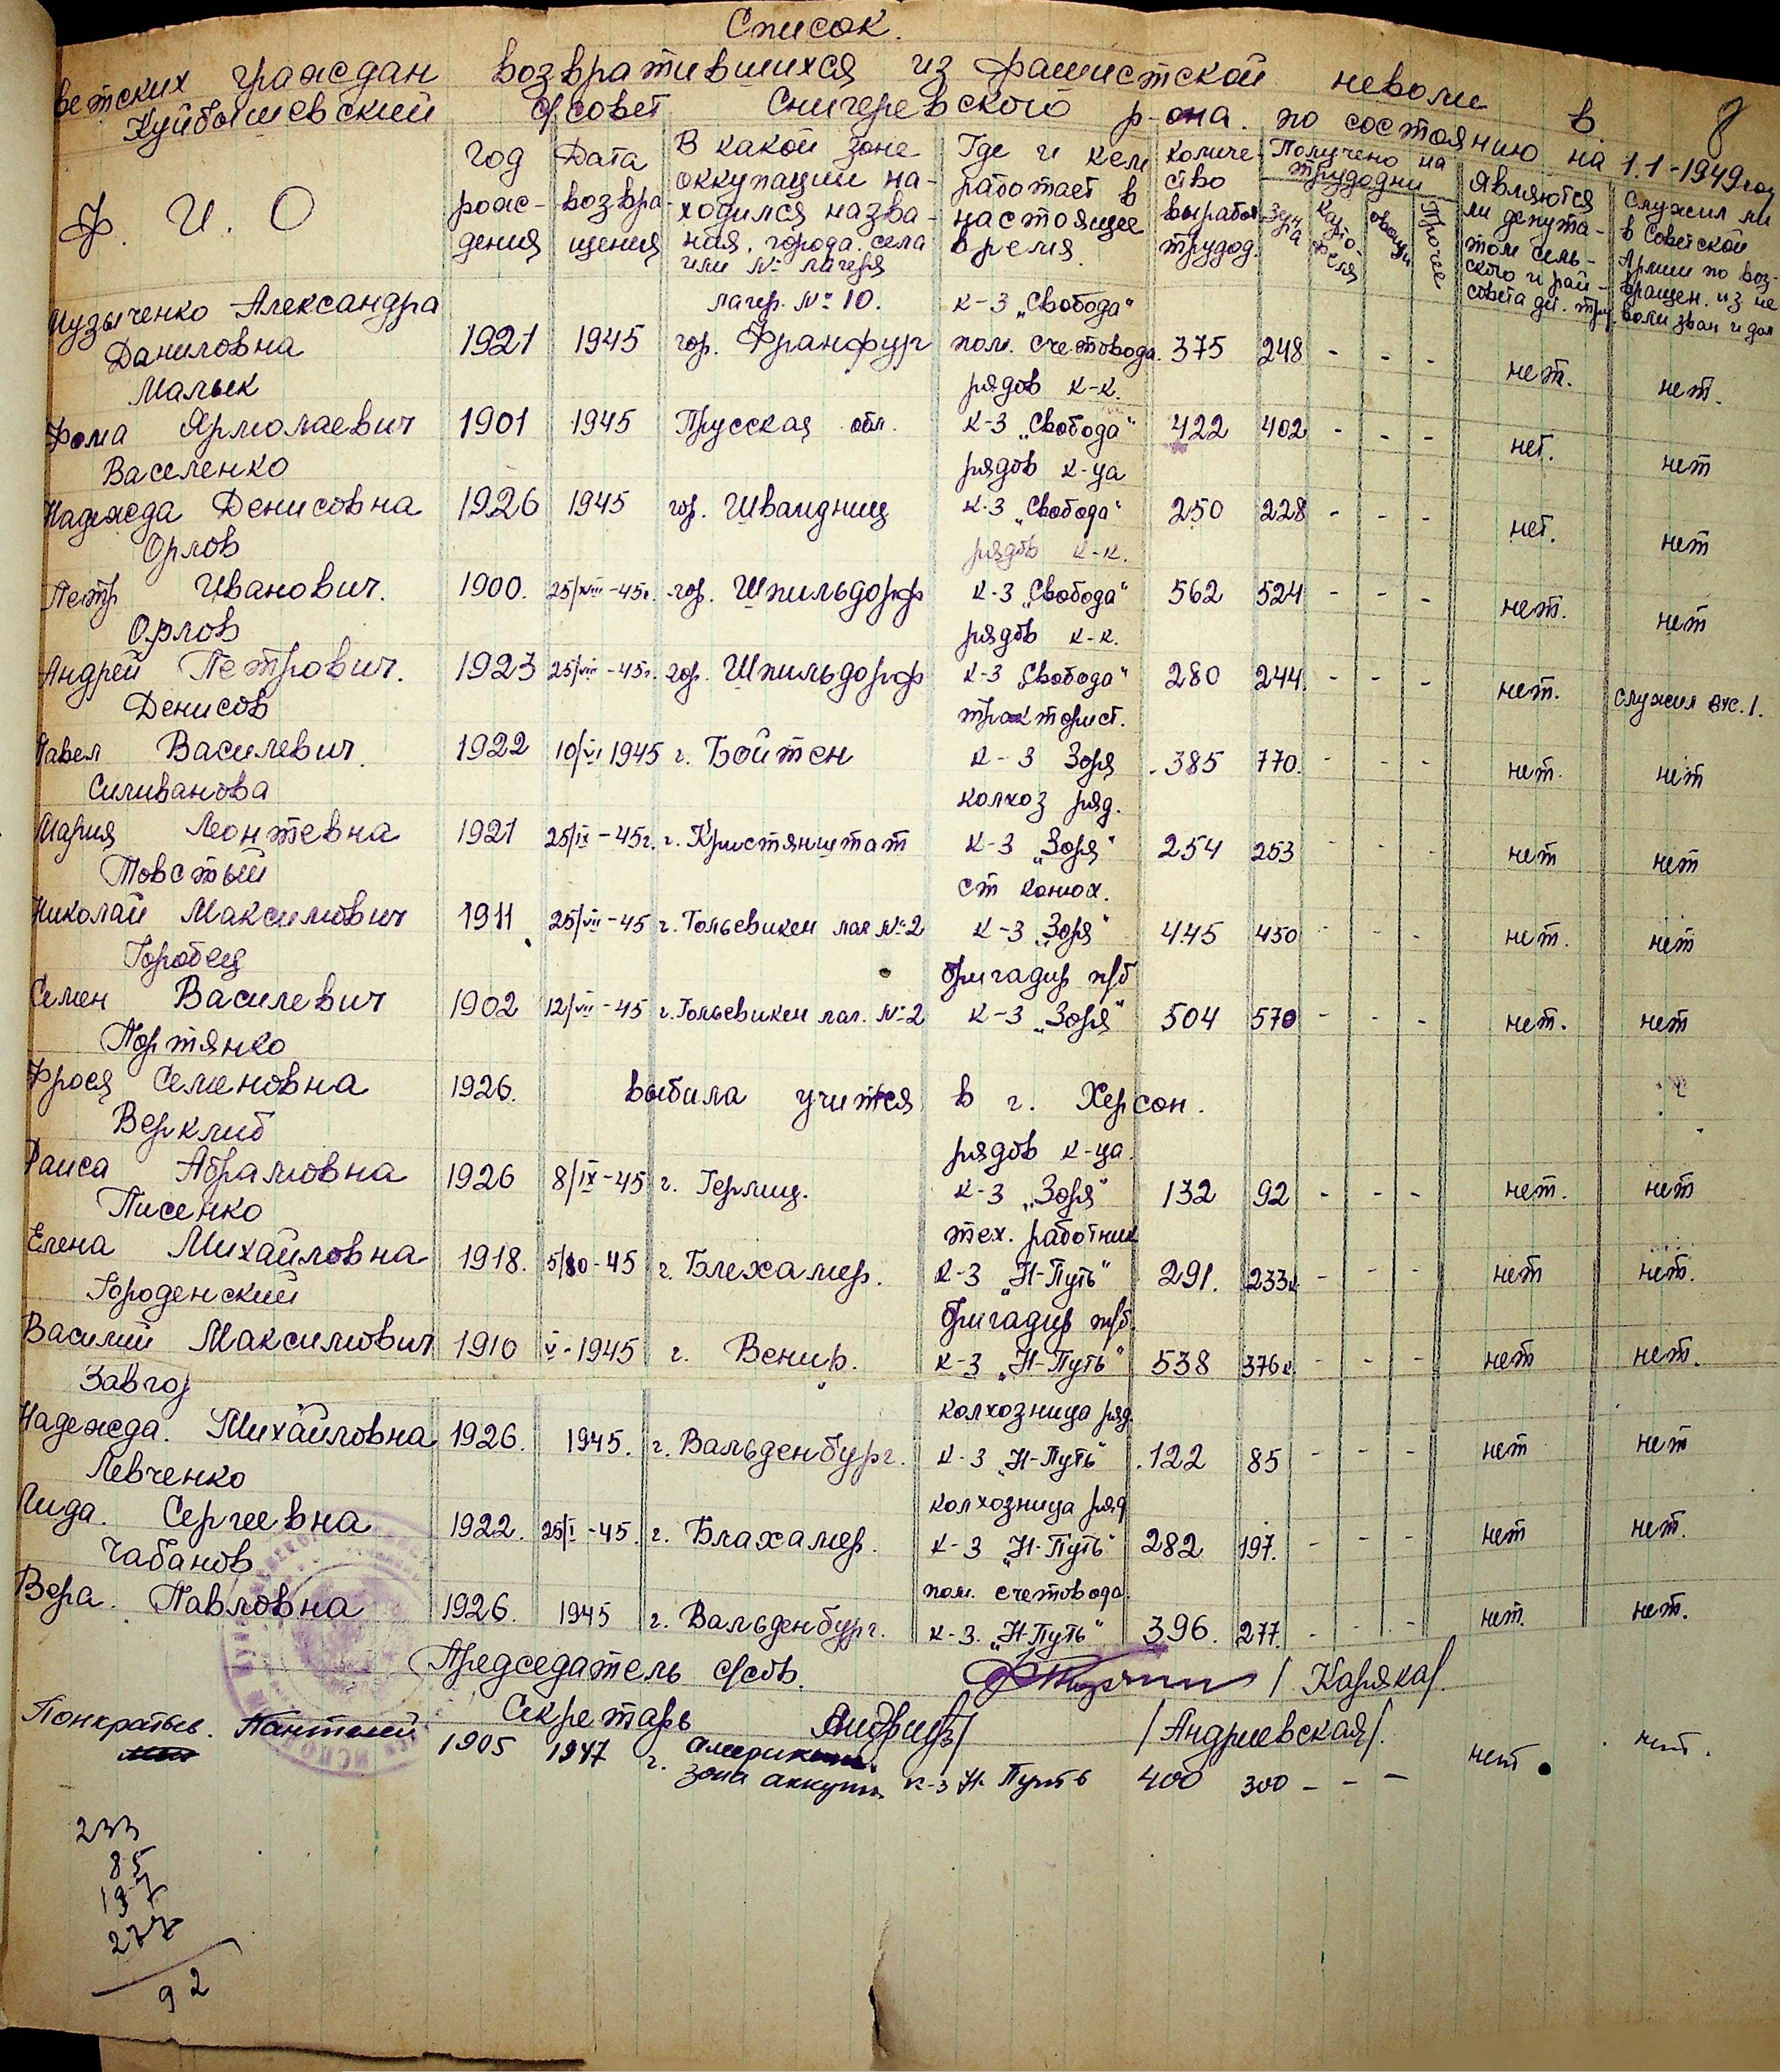 Список.
ветских граждан возвратившихся из фашистской неволи в
Куйбышевский с/совет Снигеревского р-она. по состоянию на 1.1-1949 год
8
Ф. И. О
год рождения
Дата возвращения
В какой зоне оккупации находился название, города. села или № лагеря
Где и кем работает в настоящее время.
количество выработ. трудод.
Получено на трудодни
Зерна
Картофеля
овощи
Прочее
Являются ли депутатом сельского и рай-совета деп. труд.
Служил ли в Советской Армии по возвращен. из неволи зван и дол
Музыченко Александра лагер. № 10. к-з „Свобода"
Даниловна 1921 1945 гор. Франфург пом. счетовода. 375 248 - - - нет. нет.
Малык рядов к-к.
Фома Ярмолаевич 1901 1945 Прусская обл. к-з „Свобода" 422 402 - - - нет. нет
Василенко рядов к-ца
Надежда Денисовна 1926 1945 гор. Швайдниц к-з „Свобода" 250 228 - - - нет. нет
Орлов рядов к-к.
Петр Иванович. 1900. 25/VIII-45г. гор. Шпильдорф к-з „Свобода" 562 524 - - - нет. нет
Орлов рядов к-к.
Андрей Петрович. 1923 25/VIII-45г. гор. Шпильдорф к-з „Свобода" 280 244 - - - нет. служил
Денисов тракторист.
Павел Василевич. 1922 10/VI 1945 г. Бойтен к-з Зоря 385 770. - - - нет. нет
Силиванова колхоз ряд.
Мария Леонтевна 1921 25/IX-45г. г. Кристянштат к-з „Зоря" 254 253 - - - нет нет
Товстый ст конюх.
Николай Максимович 1911 25/VII-45 г. Гольевикен лаг №2 к-з „Зоря" 445 450 - - - нет. нет
Горобец бригадир п/б
Семен Василевич 1902 12/VII-45 г. Гольевикен лаг. №2 к-з „Зоря" 504 570 - - - нет. нет
Портянко
Фрося Семеновна 1926. выбила учится в г. Херсон.
Верклиб рядов к-ца.
Раиса Абрамовна 1926 8/IX-45 г. Герлиц. к-з „Зоря" 132 92 - - - нет. нет
Писенко тех. работник
Елена Михайловна 1918. 5/80-45 г. Блехамер. к-з „Н-Путь" 291. 233к - - - нет нет.
Городенский бригадир п/б.
Василий Максимович 1910 V-1945 г. Венир. к-з „Н-Путь" 538 376к - - - нет нет.
Завгор колхозница ряд.
Надежда. Михайловна 1926. 1945. г. Вальденбург. к-з „Н-Путь" 122 85 - - - нет нет
Левченко колхозница ряд
Лида. Сергеевна 1922. 25/I-45. г. Блахамер. к-з „Н-Путь" 282 197. - - - нет нет.
Чабанов пом. счетовода.
Вера. Павловна 1926. 1945 г. Вальденбург. к-з. „Н-Путь" 396. 277. - - - нет. нет.
Председатель с/сов. /Каряка/.
Секретарь /Андриевская/.
Понкратьев. Пантелей 1905 1947 г. американ. зона аккуп к-з Н-Путь 400 300 - - - нет нет.
233
85
197
277
92